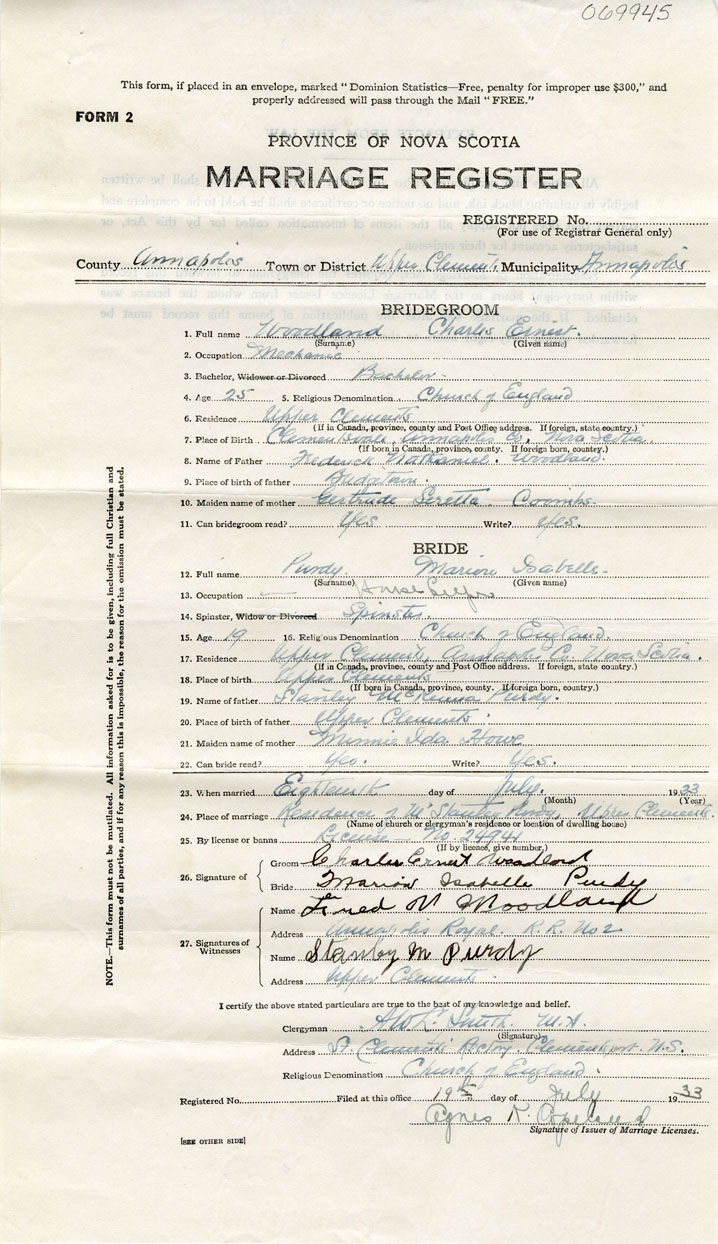 069945
This form, if placed in an envelope, marked "Dominion Statistics—Free, penalty for improper use $300," and
properly addressed will pass through the Mail "FREE."
FORM 2
PROVINCE OF NOVA SCOTIA
MARRIAGE REGISTER
REGISTERED No.
(For use of Registrar General only)
County Annapolis Town or District Upper Clements Municipality Annapolis
BRIDEGROOM
1. Full name Woodland Charles Ernest.
(Surname) (Given name)
2. Occupation Mechanic
3. Bachelor, Widower or Divorced Bachelor
4. Age 25 5. Religious Denomination Church of England
6. Residence Upper Clements
(If in Canada, province, county and Post Office address. If foreign, state country.)
7. Place of Birth Clementsvale, Annapolis Co. Nova Scotia.
(If born in Canada, province, county. If foreign born, country.)
8. Name of Father Frederick Nathaniel Woodland.
9. Place of birth of father Bridgetown.
10. Maiden name of mother Gertrude Seretta Coombs.
11. Can bridegroom read? Yes Write? Yes.
BRIDE
12. Full name Purdy. Marion Isabelle
(Surname) (Given name)
13. Occupation — House Keeper
14. Spinster, Widow or Divorced Spinster
15. Age 19 16. Religious Denomination Church of England.
17. Residence Upper Clements, Annapolis Co. Nova Scotia.
(If in Canada, province, county and Post Office address. If foreign, state country.)
18. Place of birth Upper Clements
(If born in Canada, province, county. If foreign born, country.)
19. Name of father Stanley McKenna Purdy.
20. Place of birth of father Upper Clements.
21. Maiden name of mother Minnie Ida Howe
22. Can bride read? Yes. Write? Yes.
23. When married Eighteenth day of July. 1933
(Month) (Year)
24. Place of marriage Residence of Mr Stanley Purdy, Upper Clements.
(Name of church or clergyman's residence or location of dwelling house)
25. By license or banns License No. 24941
(If by licence, give number.)
26. Signature of
Groom Charles Ernest Woodland
Bride Marion Isabelle Purdy
27. Signatures of Witnesses
Name Fred N Woodland
Address Annapolis Royal. R.R. No 2
Name Stanley M Purdy
Address Upper Clements.
I certify the above stated particulars are true to the best of my knowledge and belief.
Clergyman Smith. M.A.
(Signature)
Address St. Clements Rectory, Clementsport. N.S.
Religious Denomination Church of England.
Registered No. Filed at this office 19th day of July 1933
Agnes Copeland
Signature of Issuer of Marriage Licenses.
[SEE OTHER SIDE]
NOTE.—This form must not be mutilated. All information asked for is to be given, including full Christian and
surnames of all parties, and if for any reason this is impossible, the reason for the omission must be stated.